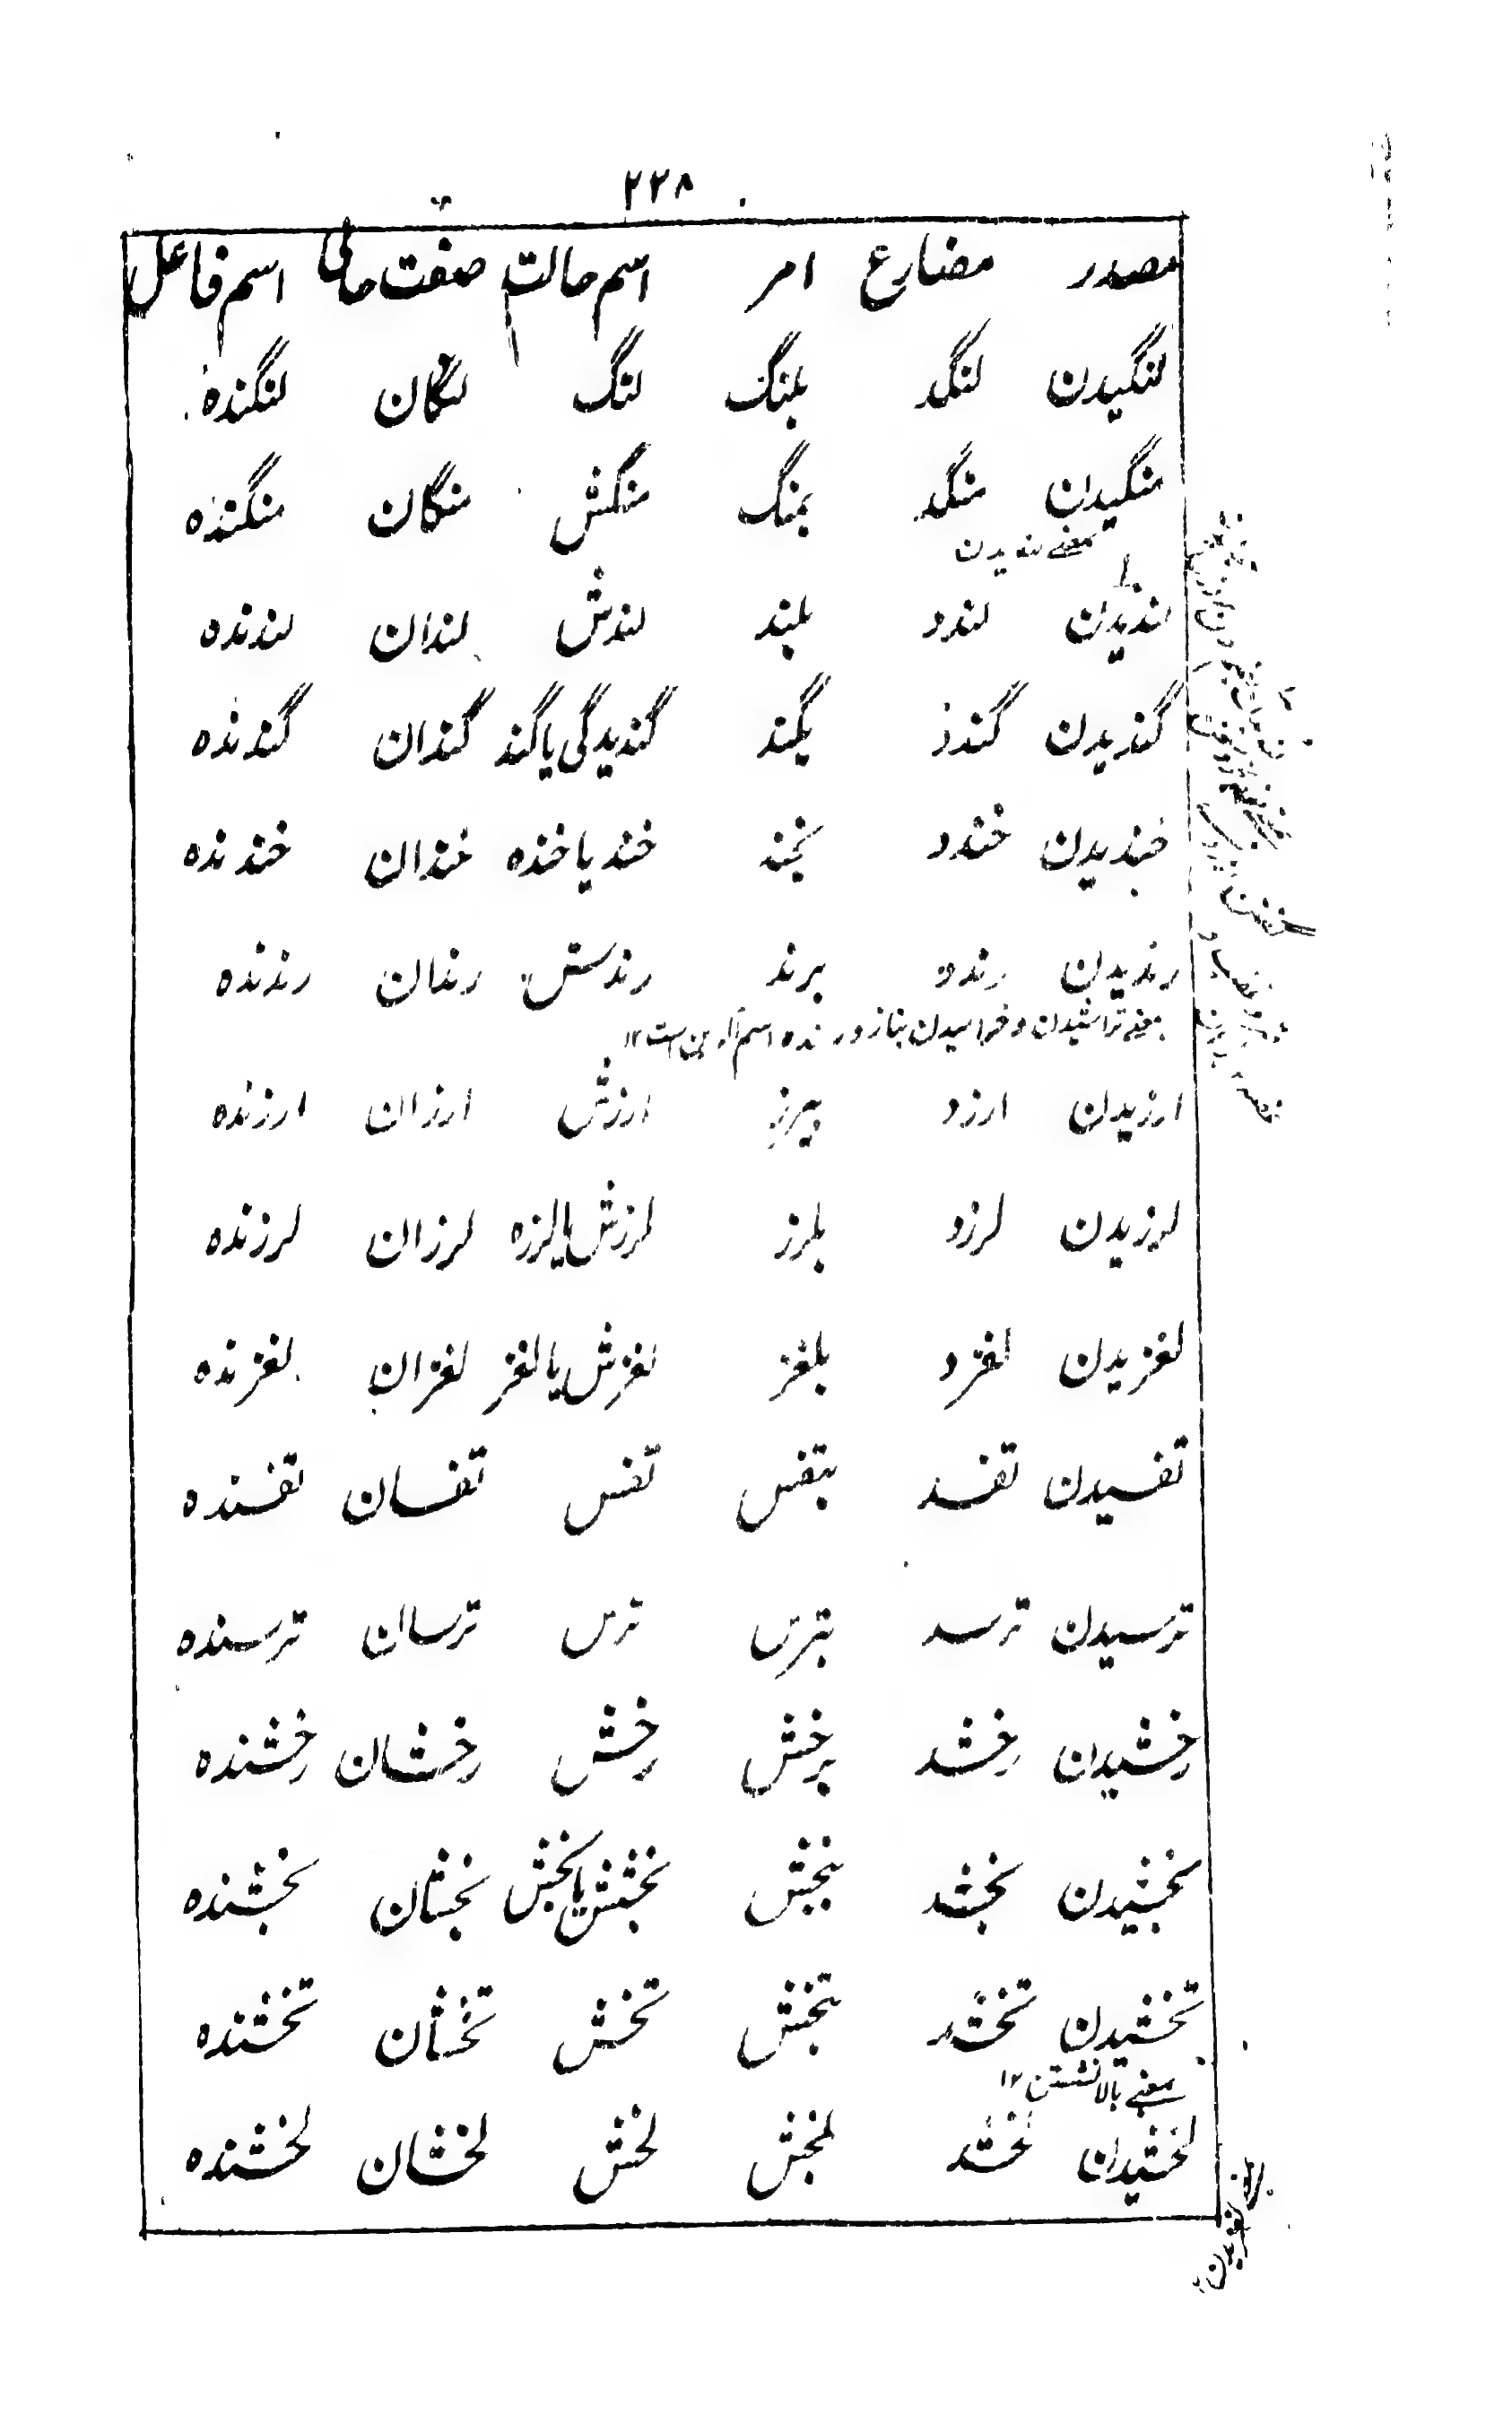 ۲۲۸
مصدر مضارع امر اسم حالت صفت حالی اسم فاعل
لنگیدن لنگد بلنگ لنگ لنگان لنگنده
منگیدن منگد بمنگ منگش منگان منگنده
بمعنے
لندیدن لندد بلند لندش لندان لندنده
گندیدن گندد بگند گندیدگی یا گند گندان گندنده
خندیدن خندد بخند خند یا خنده خندان خندنده
رندیدن رندد برند رندش رندان رندنده
بمعنے تراشیدن و خرامیدن بناز و رنده اسم آلہ ازین است ۱۲
ارزیدن ارزد بیرز ارزش ارزان ارزنده
لرزیدن لرزد بلرز لرزش یا لرزه لرزان لرزنده
لغزیدن لغزد بلغز لغزش یا لغز لغزان لغزنده
تفسیدن تفسد بتفس تفس تفسان تفسنده
ترسیدن ترسد بترس ترس ترسان ترسنده
رخشیدن رخشد برخش رخش رخشان رخشنده
بخشیدن بخشد ببخش بخشش یا بخش بخشان بخشنده
تخشیدن تخشد بتخش تخش تخشان تخشنده
بمعنے بالا نشستن ۱۲
لخشیدن لخشد بلخش لخش لخشان لخشنده
لغزیدن